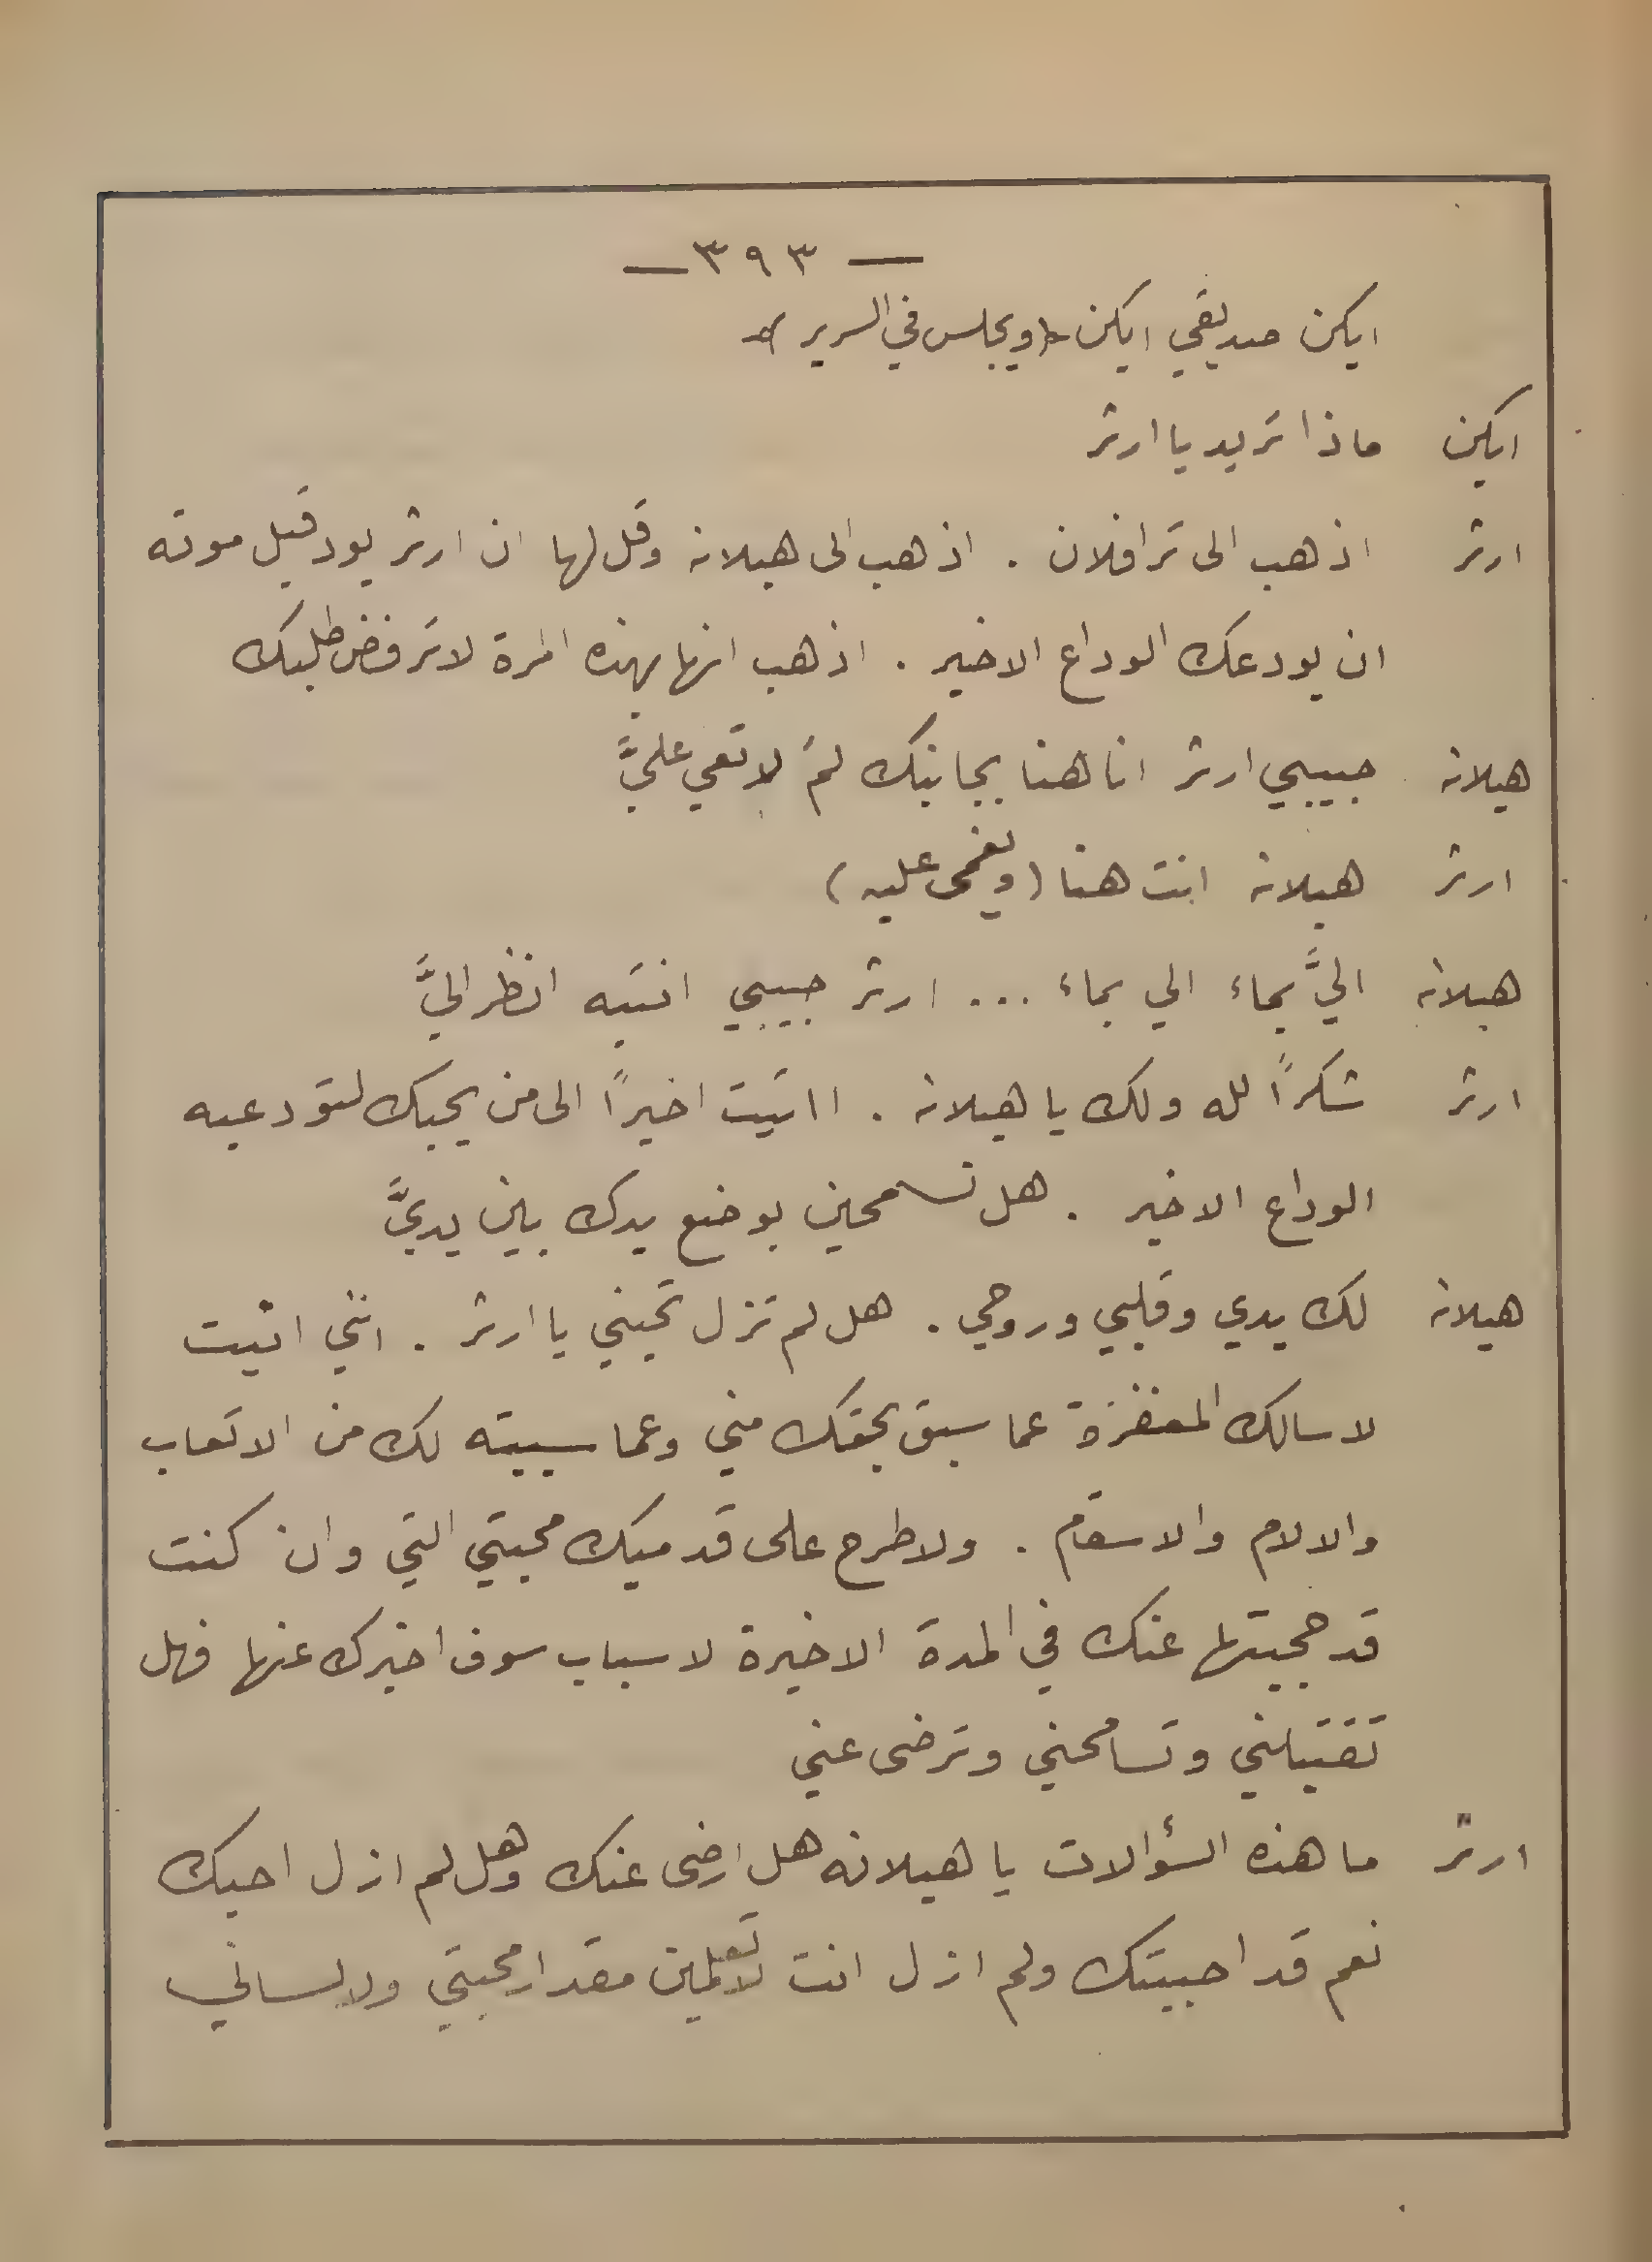 — ٣٩٣ —
ايكن صديقي ايكن (ويجلس في السرير)
ايكن ماذا تريد يا ارثر
ارثر اذهب الى ترافلان . اذهب الى هيلانه وقل لها ان ارثر يود قبل موته
ان يودعك الوداع الاخير . اذهب انها بهذه المرة لا ترفض طلبك
هيلانه حبيبي ارثر انا هنا بجانبك لمَ لا تعي عليَّ
ارثر هيلانه انت هنا (ويغمى عليه)
هيلانه اليَّ بماء الي بماء ... ارثر حبيبي انتبه انظر اليَّ
ارثر شكراً لله ولك يا هيلانه . ااتيت اخيراً الى من يحبك لتودعيه
الوداع الاخير . هل تسمحين بوضع يدك بين يديَّ
هيلانه لك يدي وقلبي وروحي . هل لم تزل تحبني يا ارثر . انني اتيت
لاسالك المغفرة عما سبق بحقك مني وعما سببته لك من الاتعاب
والالام والاسقام . ولاطرح على قدميك محبتي التي وان كنت
قد حجبتها عنك في المدة الاخيرة لاسباب سوف اخبرك عنها فهل
تقتبلني وتسامحني وترضى عني
ارثر ما هذه السؤالات يا هيلانه هل ارضى عنك وهل لم ازل احبك
نعم قد احببتك ولم ازل انت لا تعلمين مقدار محبتي ولا لساني